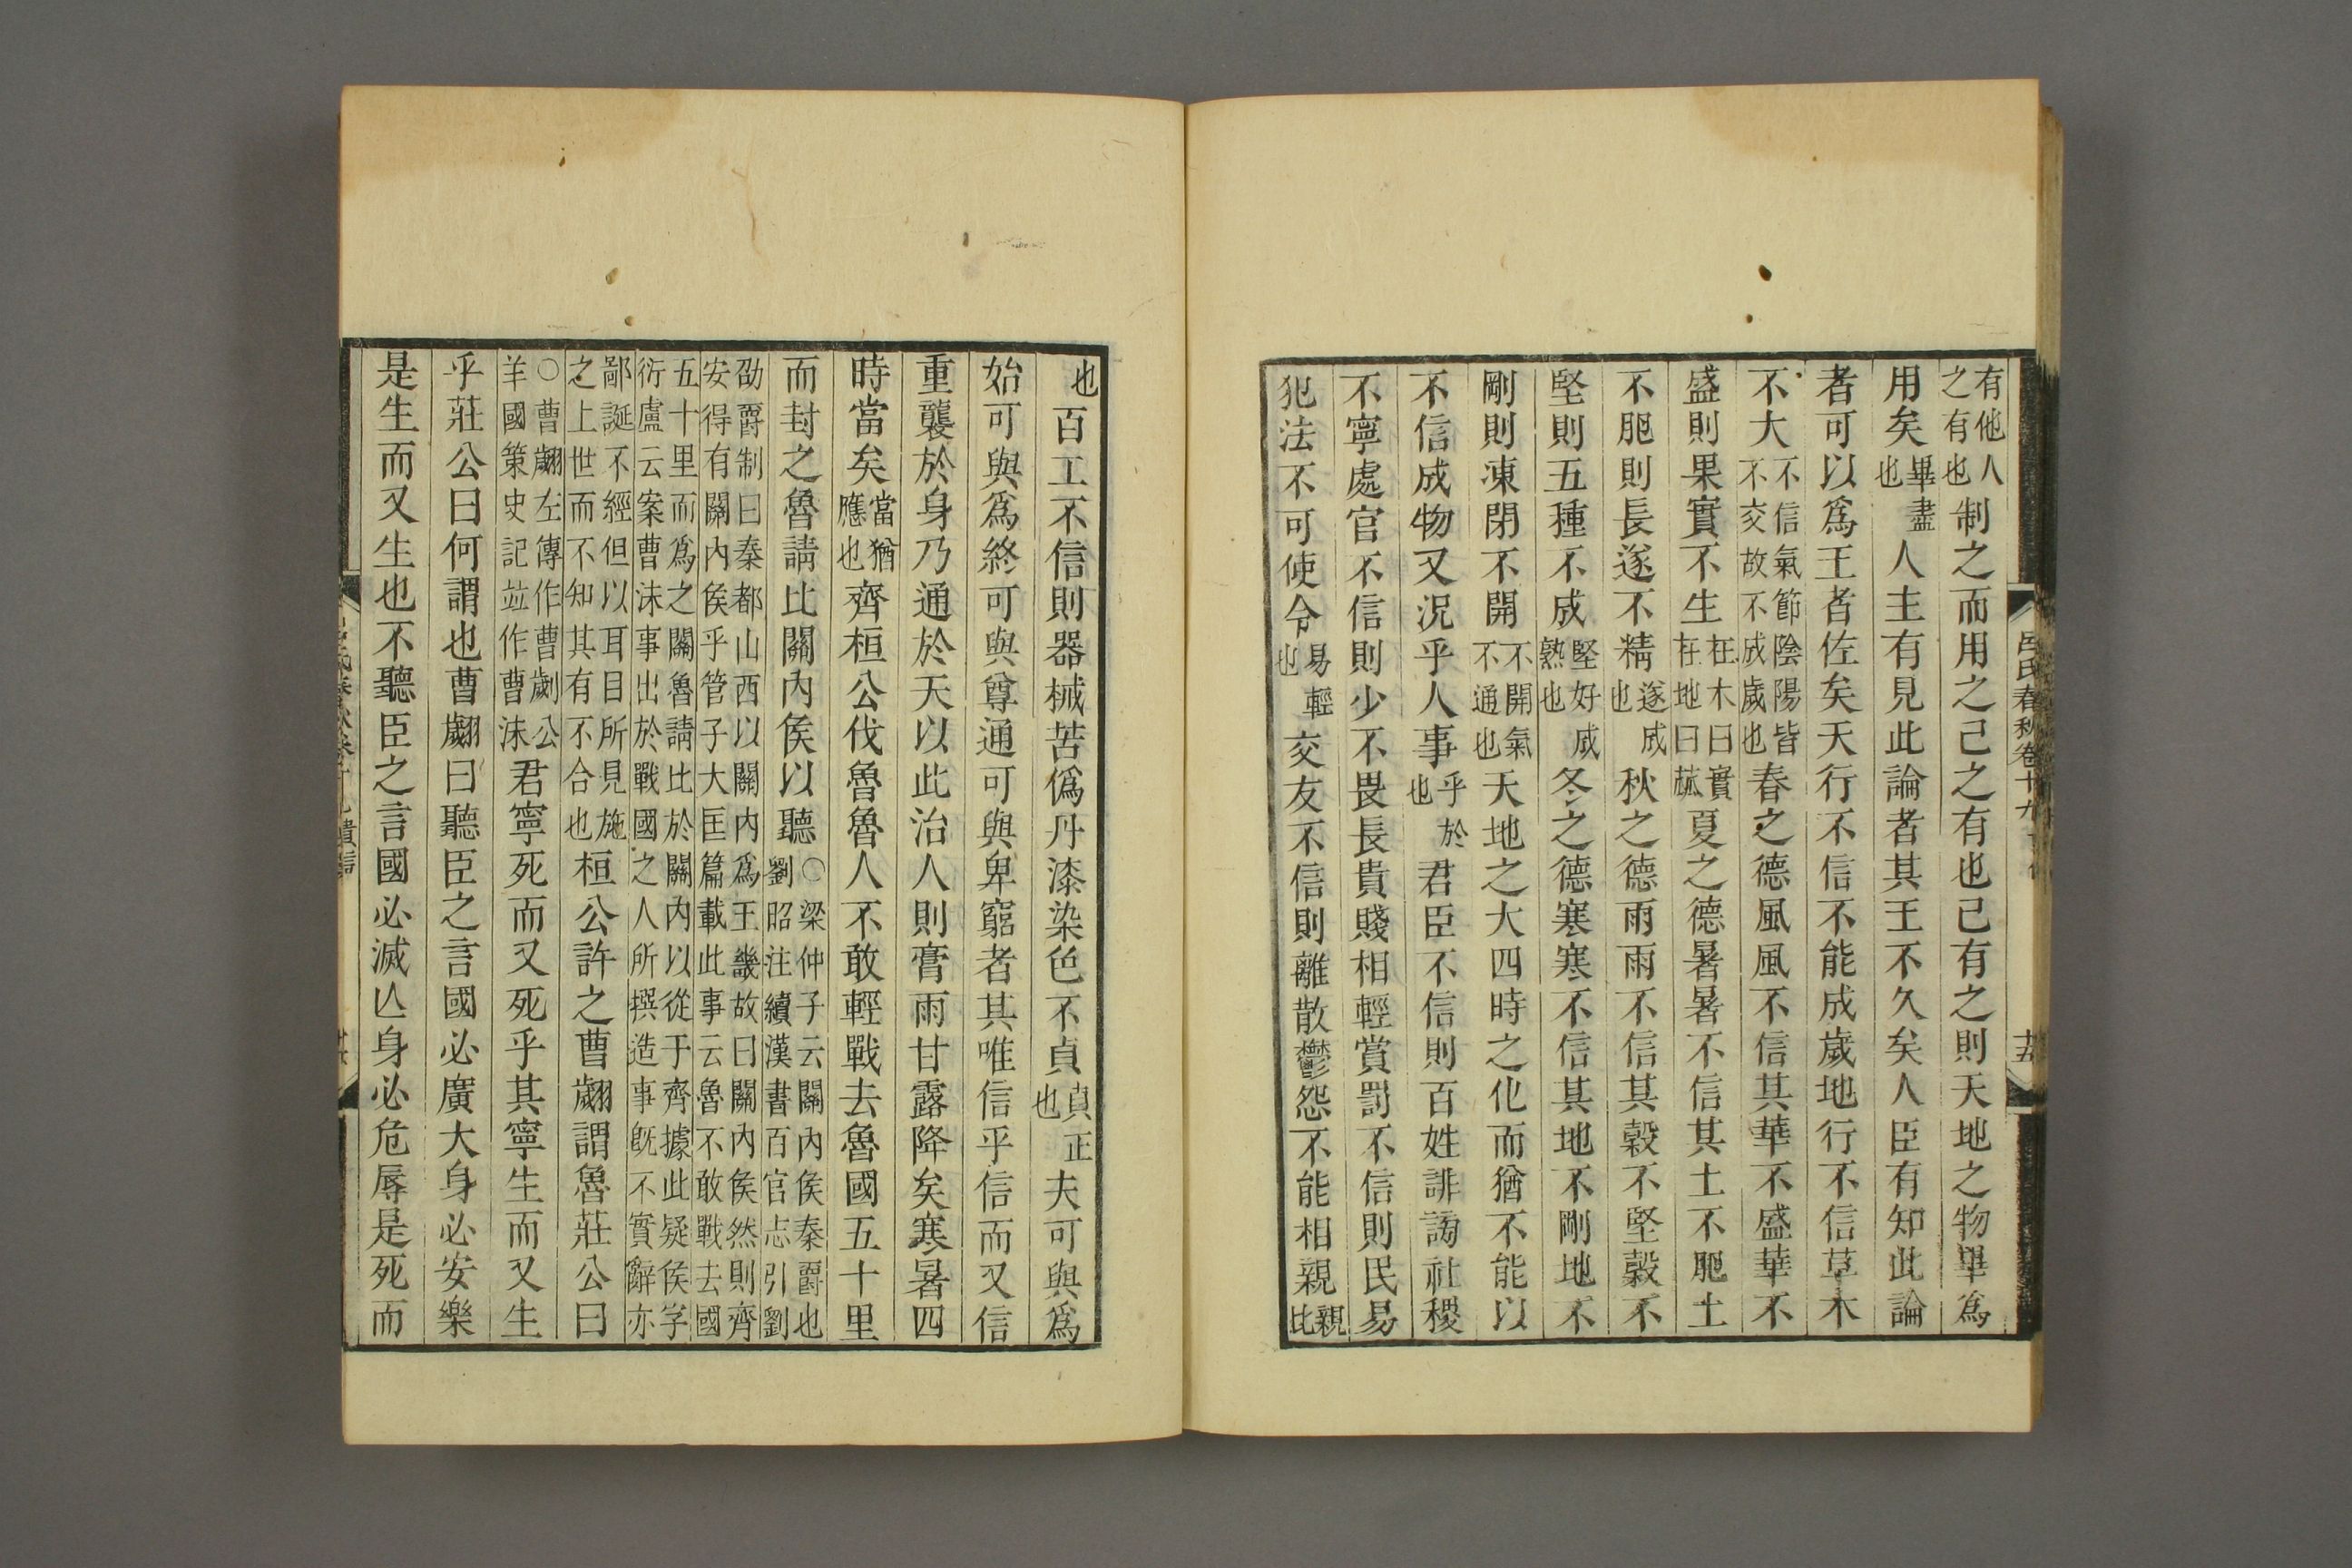 呂氏春秋卷十九
十五
有他人
之有也制之而用之己之有也己有之則天地之物畢爲
用矣畢盡
也人主有見此論者其王不久矣人臣有知此論
者可以爲王者佐矣天行不信不能成歲地行不信草木
不大不信氣節陰陽皆
不交故不成歲也春之德風風不信其華不盛華不
盛則果實不生在木曰實
在地曰蓏夏之德暑暑不信其土不肥土
不肥則長遂不精遂成
也秋之德雨雨不信其穀不堅穀不
堅則五種不成堅好成
熟也冬之德寒寒不信其地不剛地不
剛則凍閉不開不開氣
不通也天地之大四時之化而猶不能以
不信成物又況乎人事乎於
也君臣不信則百姓誹謗社稷
不寧處官不信則少不畏長貴賤相輕賞罰不信則民易
犯法不可使令易輕
也交友不信則離散鬱怨不能相親親
比
也百工不信則器械苦僞丹漆染色不貞貞正
也夫可與爲
始可與爲終可與尊通可與卑窮者其唯信乎信而又信
重襲於身乃通於天以此治人則膏雨甘露降矣寒暑四
時當矣當猶
應也齊桓公伐魯魯人不敢輕戰去魯國五十里
而封之魯請比關內侯以聽○梁仲子云關內侯秦爵也
劉昭注續漢書百官志引劉
劭爵制曰秦都山西以關內爲王畿故曰關內侯然則齊
安得有關內侯乎管子大匡篇載此事云魯不敢戰去國
五十里而爲之關魯請比於關內以從于齊據此疑侯字
衍盧云案曹沫事出於戰國之人所撰造事既不實辭亦
鄙誕不經但以耳目所見施
之上世而不知其有不合也桓公許之曹翽謂魯莊公曰
○曹翽左傳作曹劌公
羊國策史記竝作曹沫君寧死而又死乎其寧生而又生
乎莊公曰何謂也曹翽曰聽臣之言國必廣大身必安樂
是生而又生也不聽臣之言國必滅亡身必危辱是死而